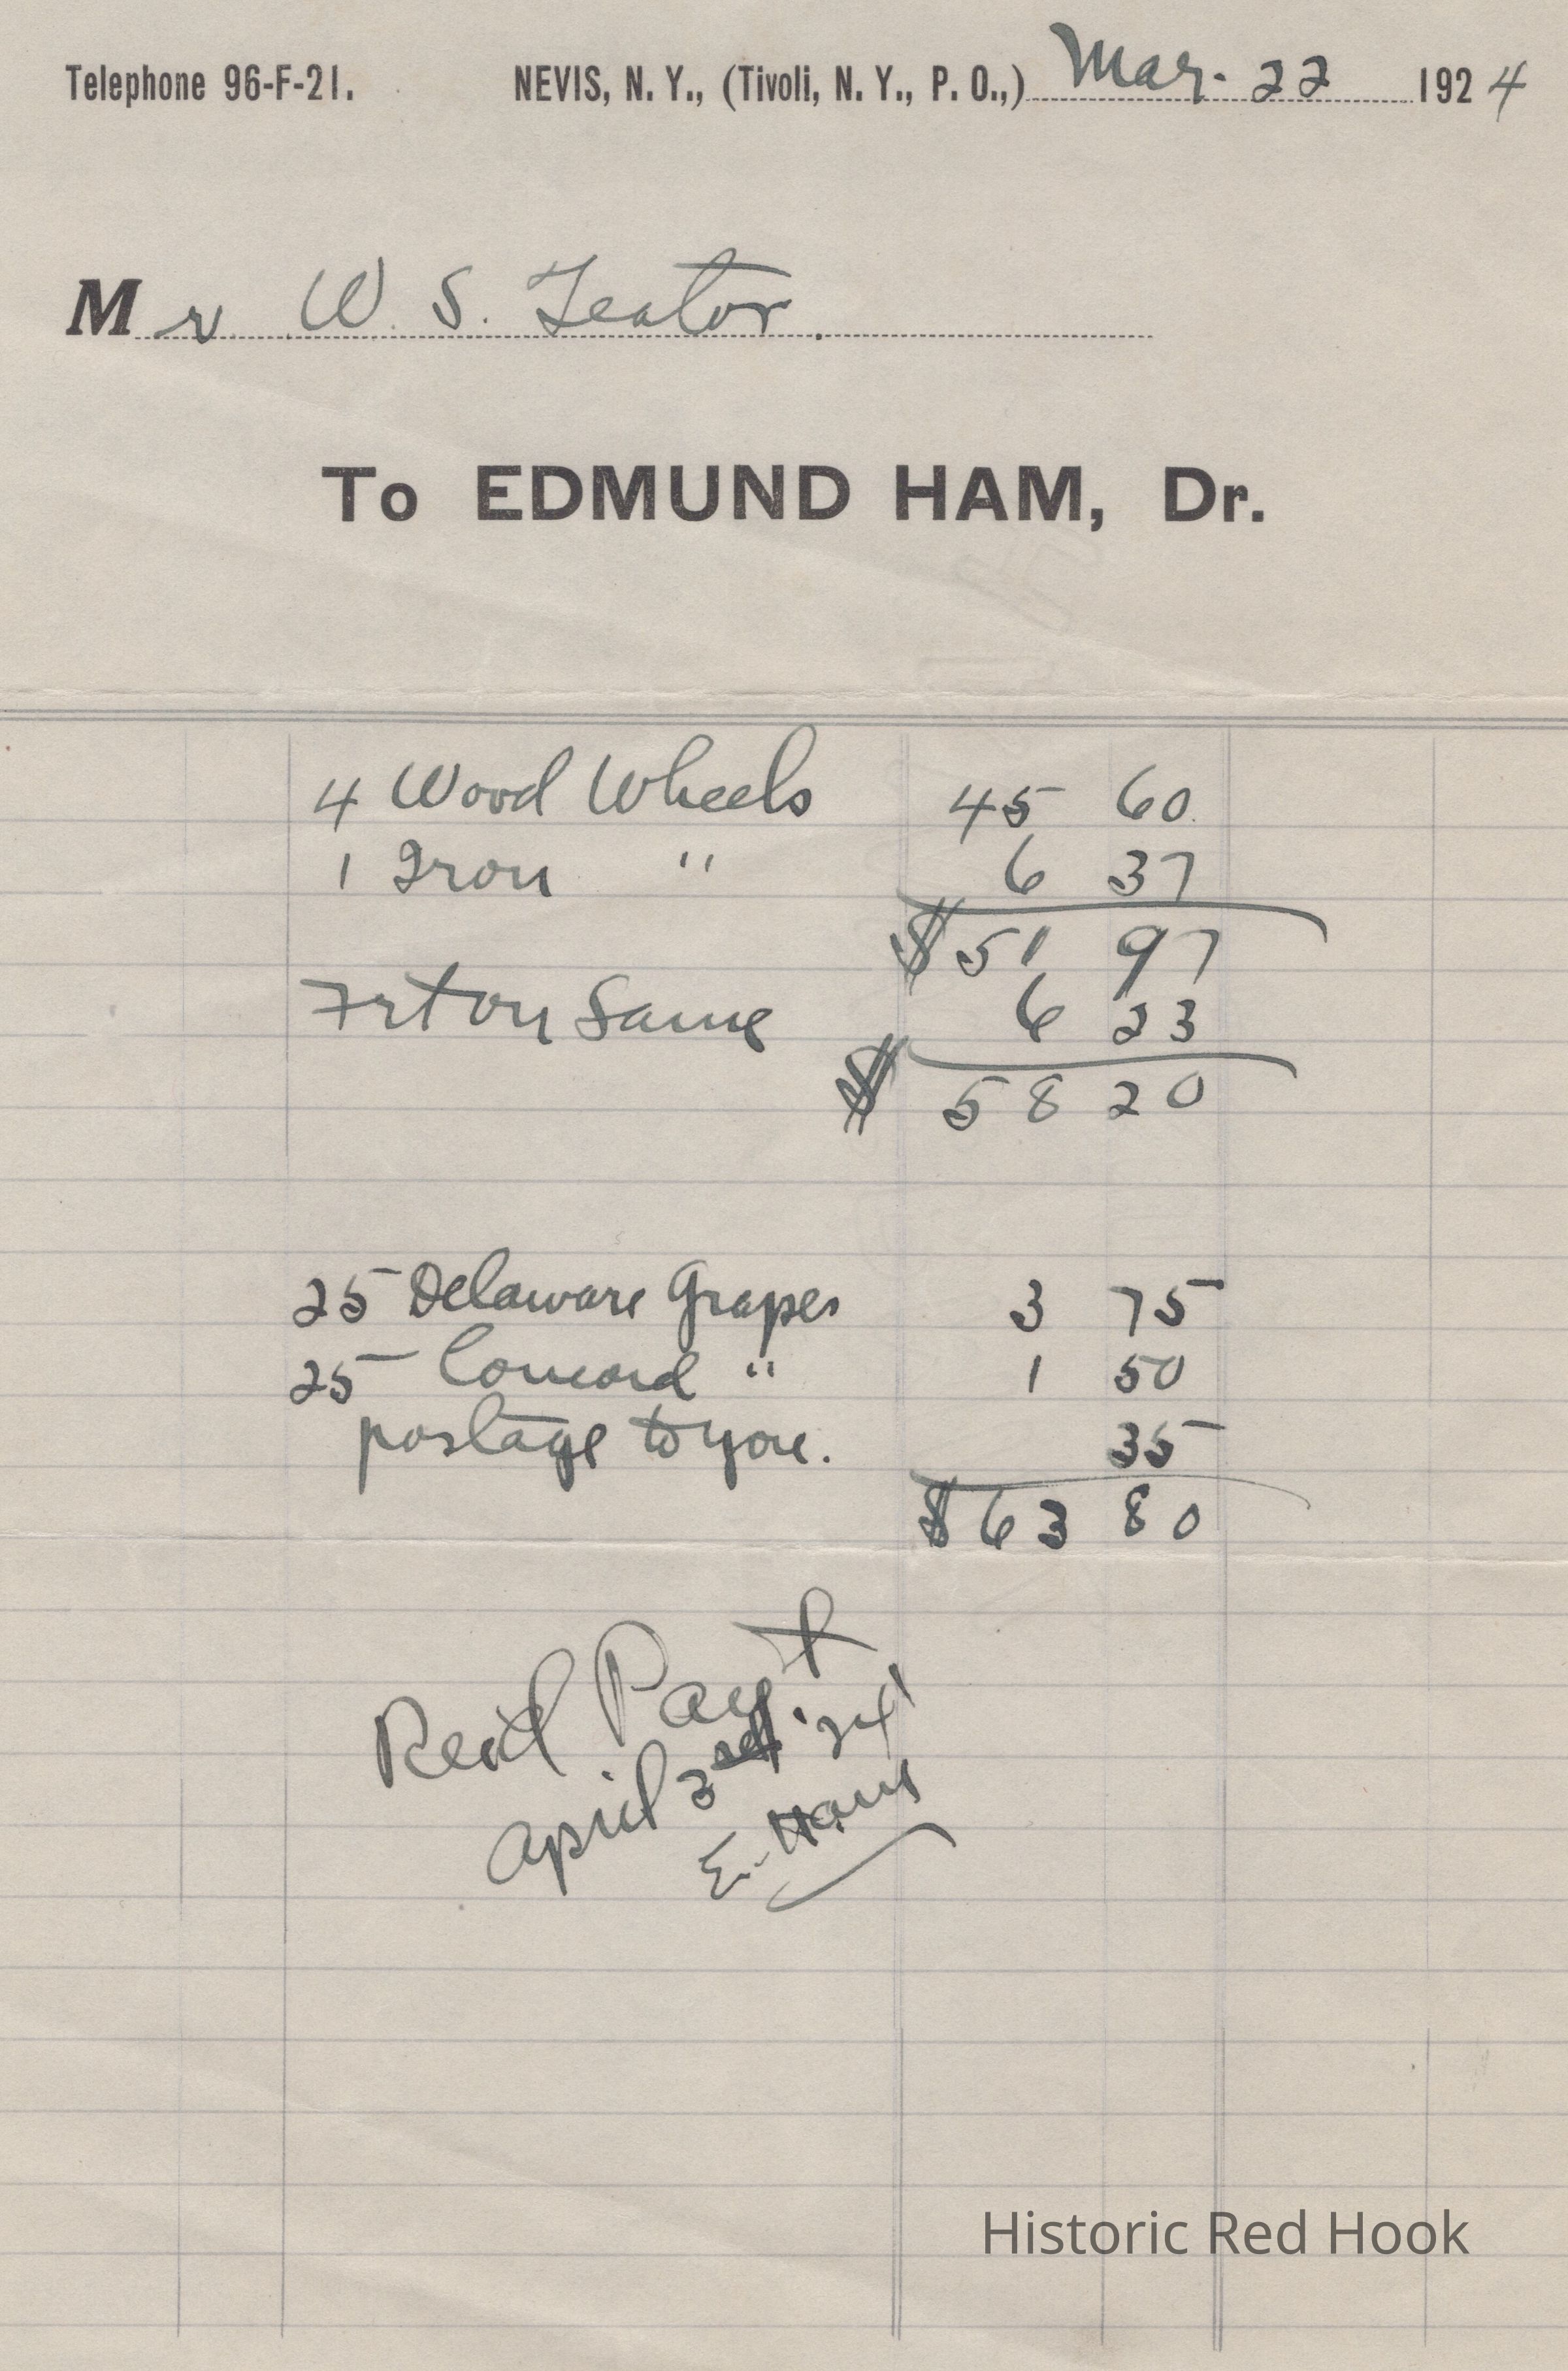 Telephone 96-F-21. NEVIS, N. Y., (Tivoli, N. Y., P. O.,) Mar. 22 1924
Mr W. S. Teator.
To EDMUND HAM, Dr.
4 Wood Wheels 45 60
1 Iron " 6 37
$51 97
Frt on Same 6 23
$ 58 20
25 Delaware Grapes 3 75
25 Concord " 1 50
postage to you. 35
$63 80
Recd Payt
April 3rd '24
E. Ham
Historic Red Hook